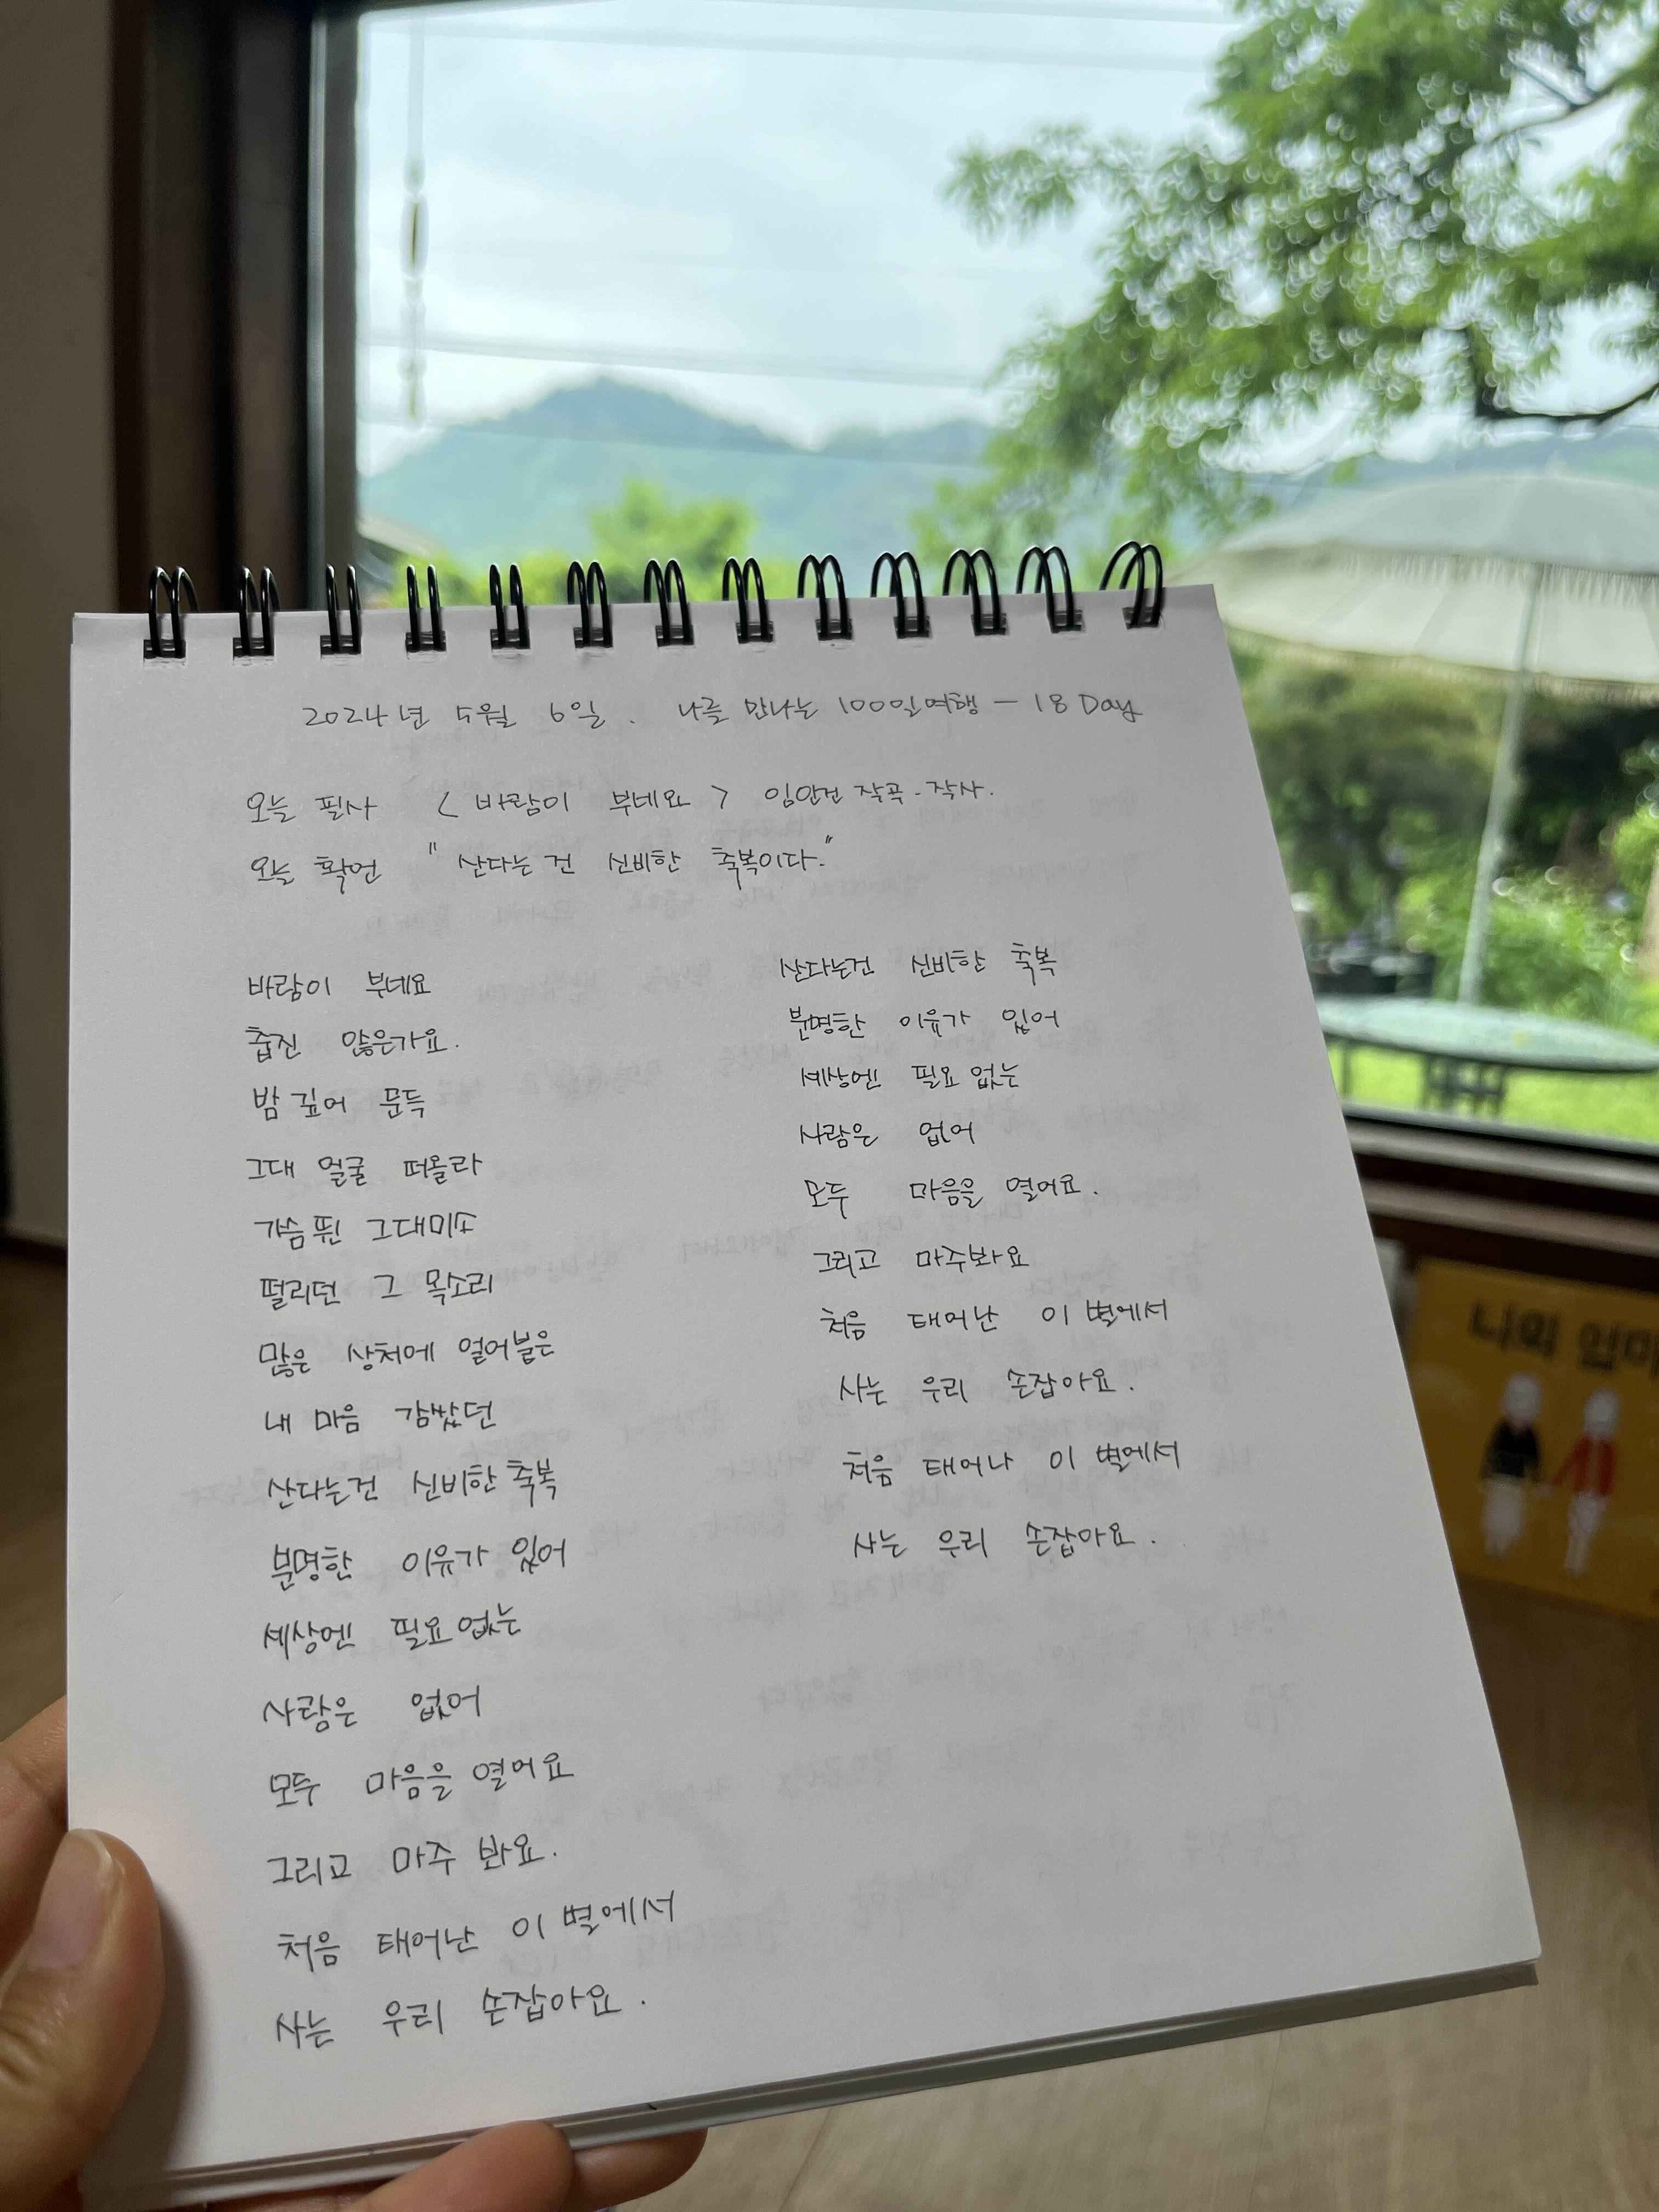 2024년 5월 6일. 나를 만나는 100일여행 - 18 Day
오늘 필사 < 바람이 부네요 > 임안건 작곡.작사.
오늘 확언 "산다는 건 신비한 축복이다."
바람이 부네요
춥진 않은가요.
밤 깊어 문득
그대 얼굴 떠올라
가슴 뛴 그대미소
떨리던 그 목소리
많은 상처에 얼어붙은
내 마음 감쌌던
산다는건 신비한 축복
분명한 이유가 있어
세상엔 필요 없는
사람은 없어
모두 마음을 열어요
그리고 마주 봐요.
처음 태어난 이 별에서
사는 우리 손잡아요.
산다는건 신비한 축복
분명한 이유가 있어
세상엔 필요 없는
사람은 없어
모두 마음을 열어요.
그리고 마주봐요
처음 태어난 이 별에서
사는 우리 손잡아요.
처음 태어나 이 별에서
사는 우리 손잡아요.
나와 엄마